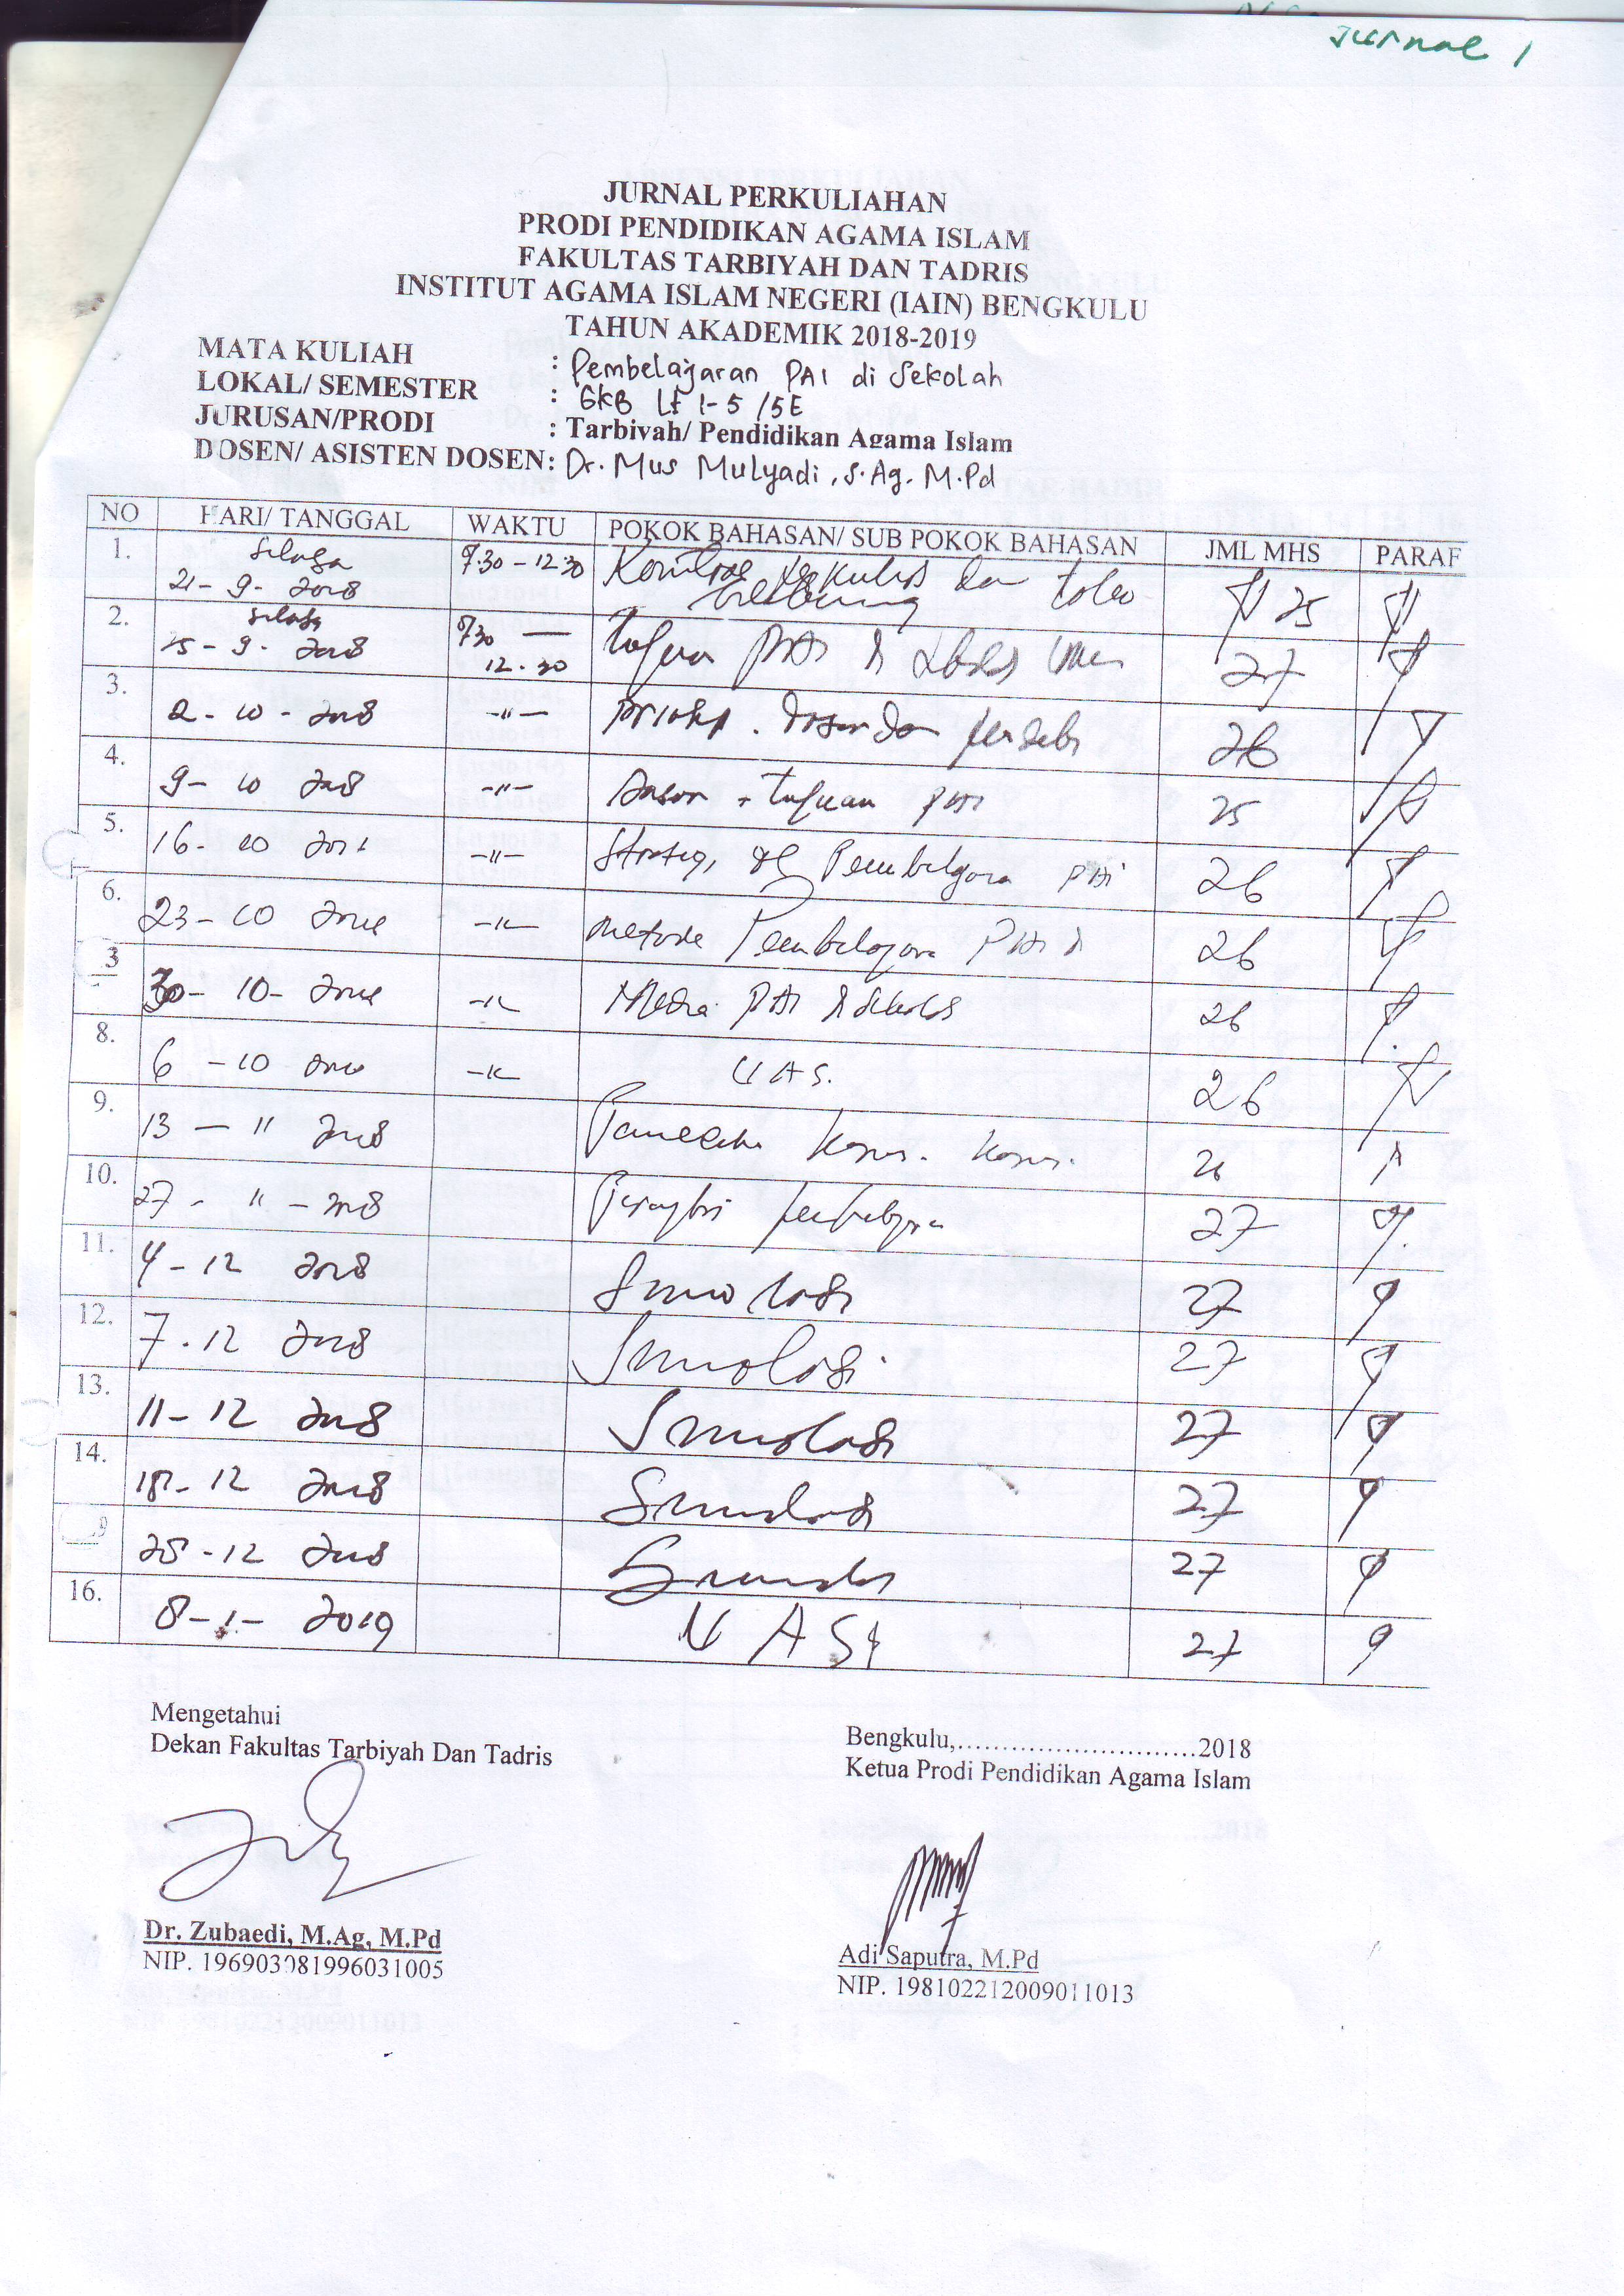 Jurnal 1
JURNAL PERKULIAHAN
PRODI PENDIDIKAN AGAMA ISLAM
FAKULTAS TARBIYAH DAN TADRIS
INSTITUT AGAMA ISLAM NEGERI (IAIN) BENGKULU
TAHUN AKADEMIK 2018-2019
MATA KULIAH : Pembelajaran PAI di Sekolah
LOKAL/ SEMESTER : GKB Lt 1-5 /5E
JURUSAN/PRODI : Tarbiyah/ Pendidikan Agama Islam
DOSEN/ ASISTEN DOSEN: Dr. Mus Mulyadi, S.Ag. M.Pd
NO HARI/ TANGGAL WAKTU POKOK BAHASAN/ SUB POKOK BAHASAN JML MHS PARAF
1. Selasa 9.30 - 12.30 Kontrak 25
21 - 9 - 2018
2. Selasa 9.30 — 12.30 PAI 27
25 - 9 - 2018
3. 2 - 10 - 2018 -"- 26
4. 9 - 10 2018 -"- Dasar + tujuan PAI 25
5. 16 - 10 -"- Strategi Pembelajaran PAI 26
6. 23 - 10 2018 -"- Metode Pembelajaran PAI 26
30 - 10 - 2018 -"- Media PAI di Sekolah 26
8. 6 - 10 2018 -"- UAS. 26
9. 13 — " 2018 26
10. 27 - " - 2018 27
11. 4 - 12 2018 Simulasi 27
12. 7 - 12 2018 Simulasi 27
13. 11 - 12 2018 Simulasi 27
14. 18 - 12 2018 Simulasi 27
25 - 12 2018 Simulasi 27
16. 8 - 1 - 2019 UAS 27
Mengetahui
Dekan Fakultas Tarbiyah Dan Tadris
Bengkulu,...........................2018
Ketua Prodi Pendidikan Agama Islam
Dr. Zubaedi, M.Ag, M.Pd
NIP. 196903081996031005
Adi Saputra, M.Pd
NIP. 198102212009011013